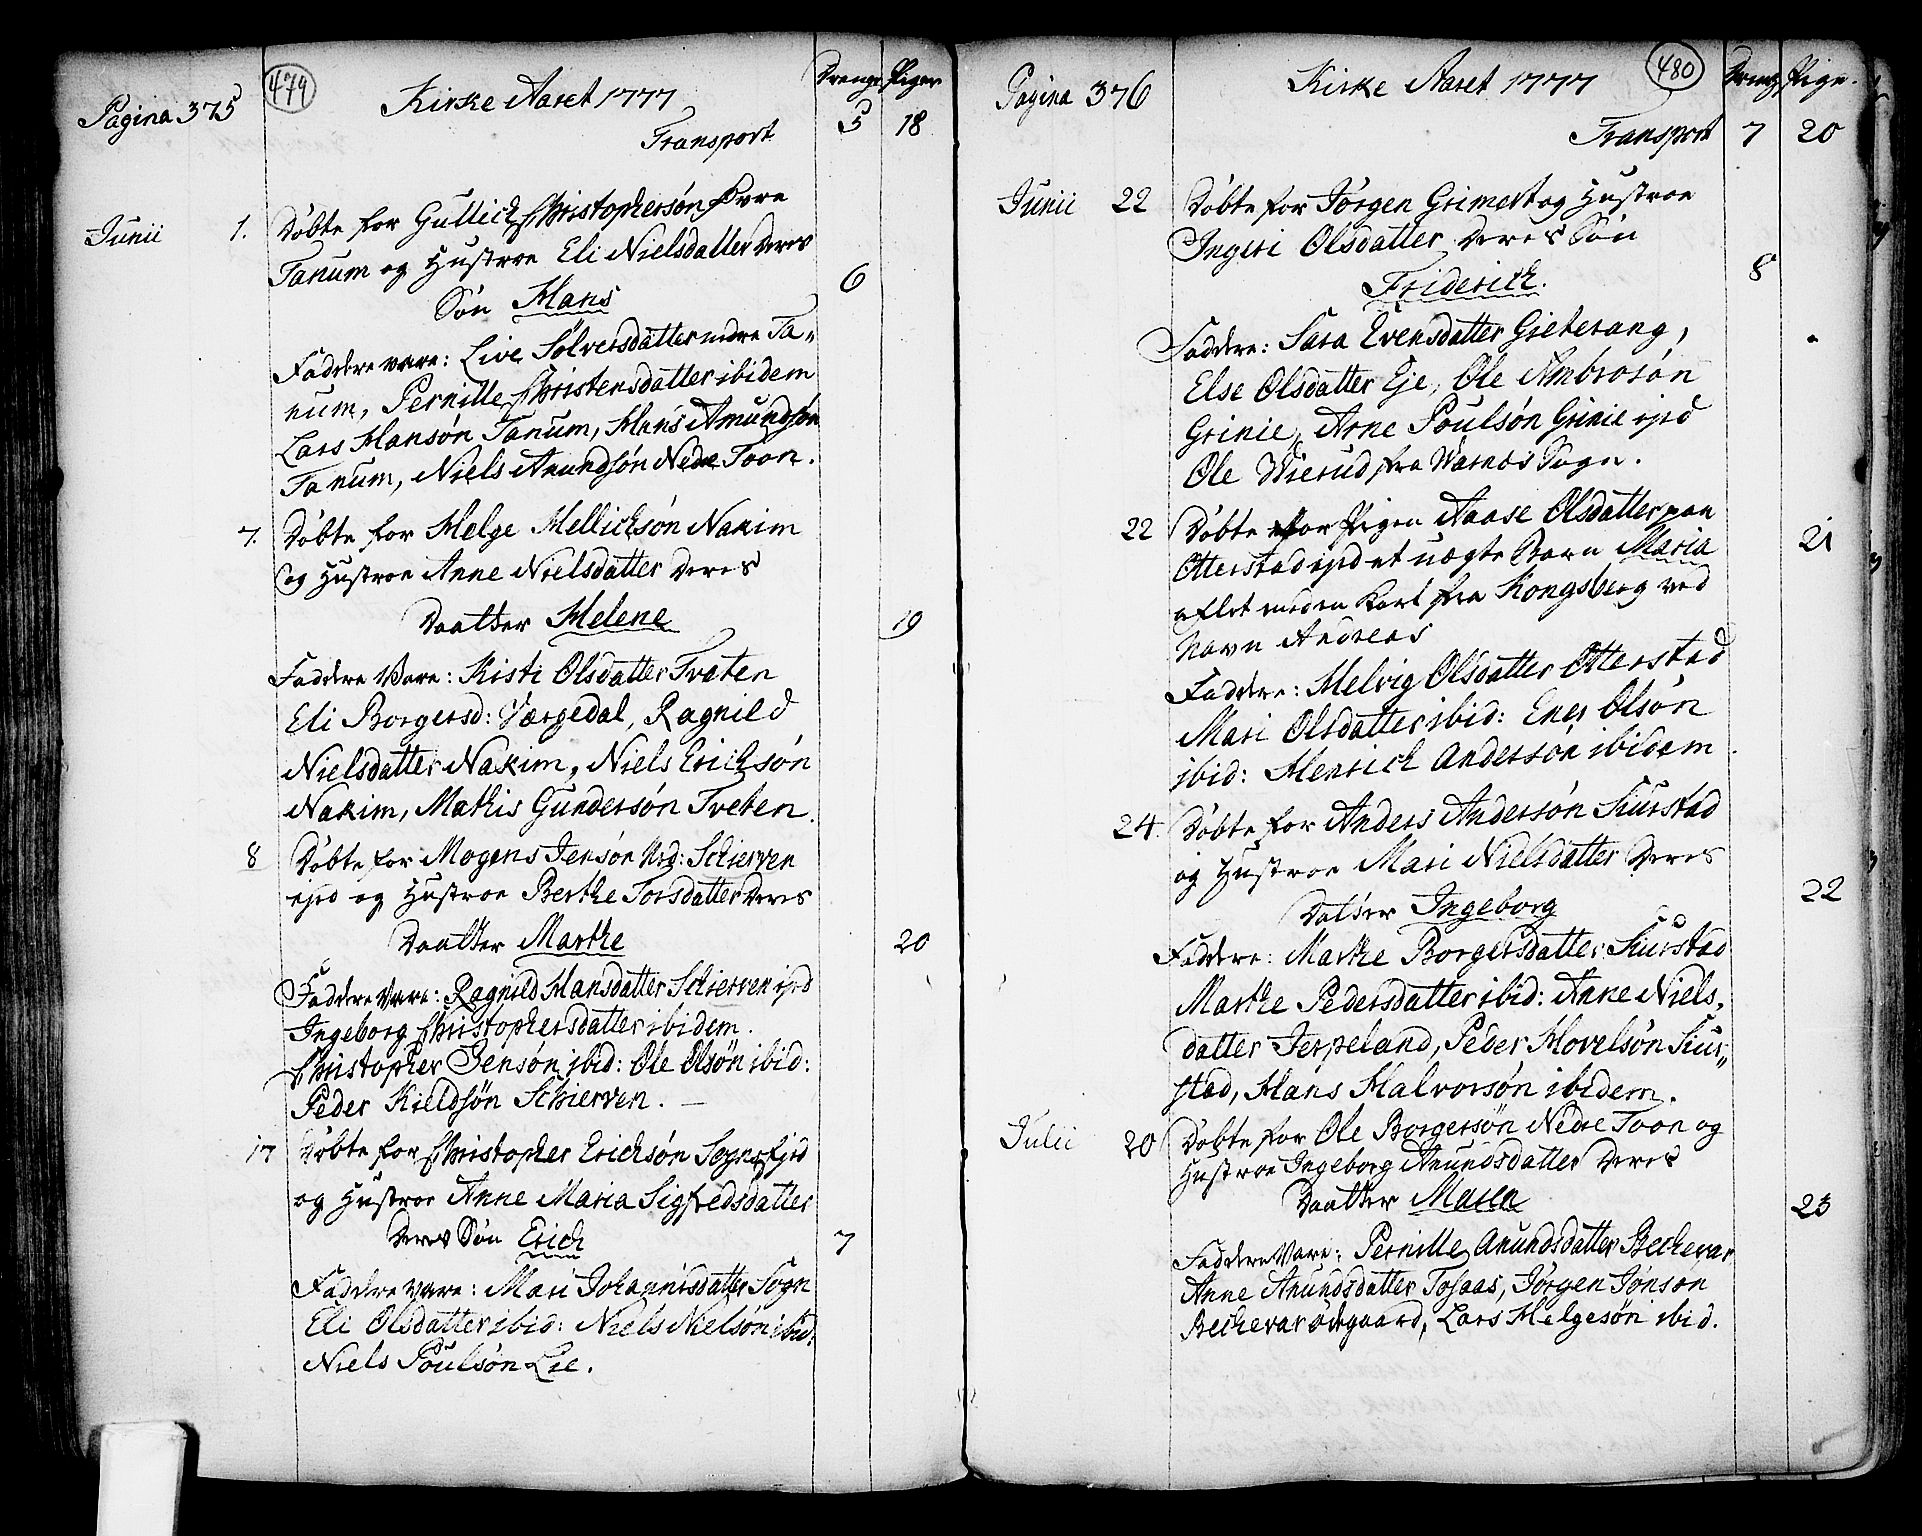 Pagina 375
479
Kirke Aaret 1777
Drenge Piger
Transport 5 18
Junii 1. Döbte for Gullich Christophersön Øvre
Tanum og Hustroe Eli Nielsdatter Deres
Sön Hans 6
Faddere vare: Live Sölversdatter nedre Ta-
num, Pernille Christensdatter ibidem
Lars Hansön Tanum, Hans Amundsön
Tanum, Niels Anundsön Nedre Toon.
7. Döbte for Helge Mellichsön Nakim
og Hustroe Anne Nielsdatter Deres
Daatter Helene 19
Faddere Vare: Kisti Olsdatter Tveten
Eli Borgersd: Værgedal, Ragnild
Nielsdatter Nakim, Niels Erichsön
Nakim, Mathis Gundersön Tveten.
8 Döbte for Mogens Jensön Nrd: Schierven
ejed og Hustroe Berthe Torsdatter Deres
Daatter Marthe 20
Faddere Vare: Ragnild Hansdatter Schierven ejed
Ingeborg Christophersdatter ibidem.
Christopher Jensön ibid: Ole Olsön ibid:
Peder Kieldsön Schierven. —
17 Döbte for Christopher Erichsön Sogn ejed
og Hustroe Anne Maria Sigfredsdatter
Deres Sön Erich 7
Faddere vare: Mari Johannisdatter Sogn
Eli Olsdatter ibid: Niels Nielsön ibid:
Niels Poulsön Lie.
Pagina 376
Kirke Aaret 1777
480
Dreng Pige.
Transport 7 20
Junii 22 Döbte for Jörgen Grimert og Hustroe
Ingeri Olsdatter Deres Sön
Friderich. 8
Faddere: Sara Evensdatter Gieterang,
Else Olsdatter Eje, Ole Ambrosön
Grinie, Arne Poulsön Grinie ejed
Ole Wierud fra Warnes Sogn.
22 Döbte for Pigen Aase Olsdatter paa
Otterstad ejed et uægte Barn Maria 21
aflet med en Karl fra Kongsberg ved
Navn Andreas
Faddere: Helvig Olsdatter Otterstad
Mari Olsdatter ibid: Ener Olsön
ibid: Henrich Andersön ibidem.
24. Döbte for Anders Andersön Siurstad
og Hustroe Mari Nielsdatter Deres
Datter Ingeborg 22
Faddere: Marthe Borgersdatter Siurstad
Marthe Pedersdatter ibid: Anne Niels-
datter Jerpeland, Peder Hovelsön Siur-
stad, Hans Halvorsön ibidem.
Julii 20 Döbte for Ole Borgersön Nedre Toon og
Hustroe Ingeborg Anundsdatter Deres
Daatter Maren 23
Faddere Vare: Pernille Anundsdatter Bechevar
Anne Anundsdatter Tosaas, Jörgen Jönson
Bechevar ödegaard, Lars Helgesön ibid.